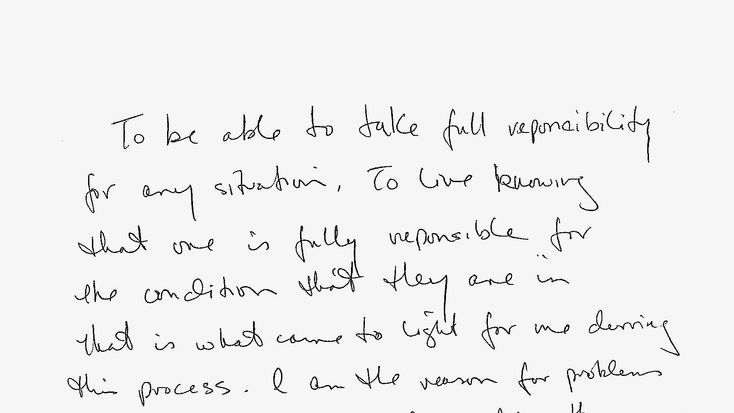 To be able to take full reponsibility
for any situation. To live knowing
that one is fully reponsible for
the condition that they are in
that is what came to light for me durring
this process. I am the reason for problems